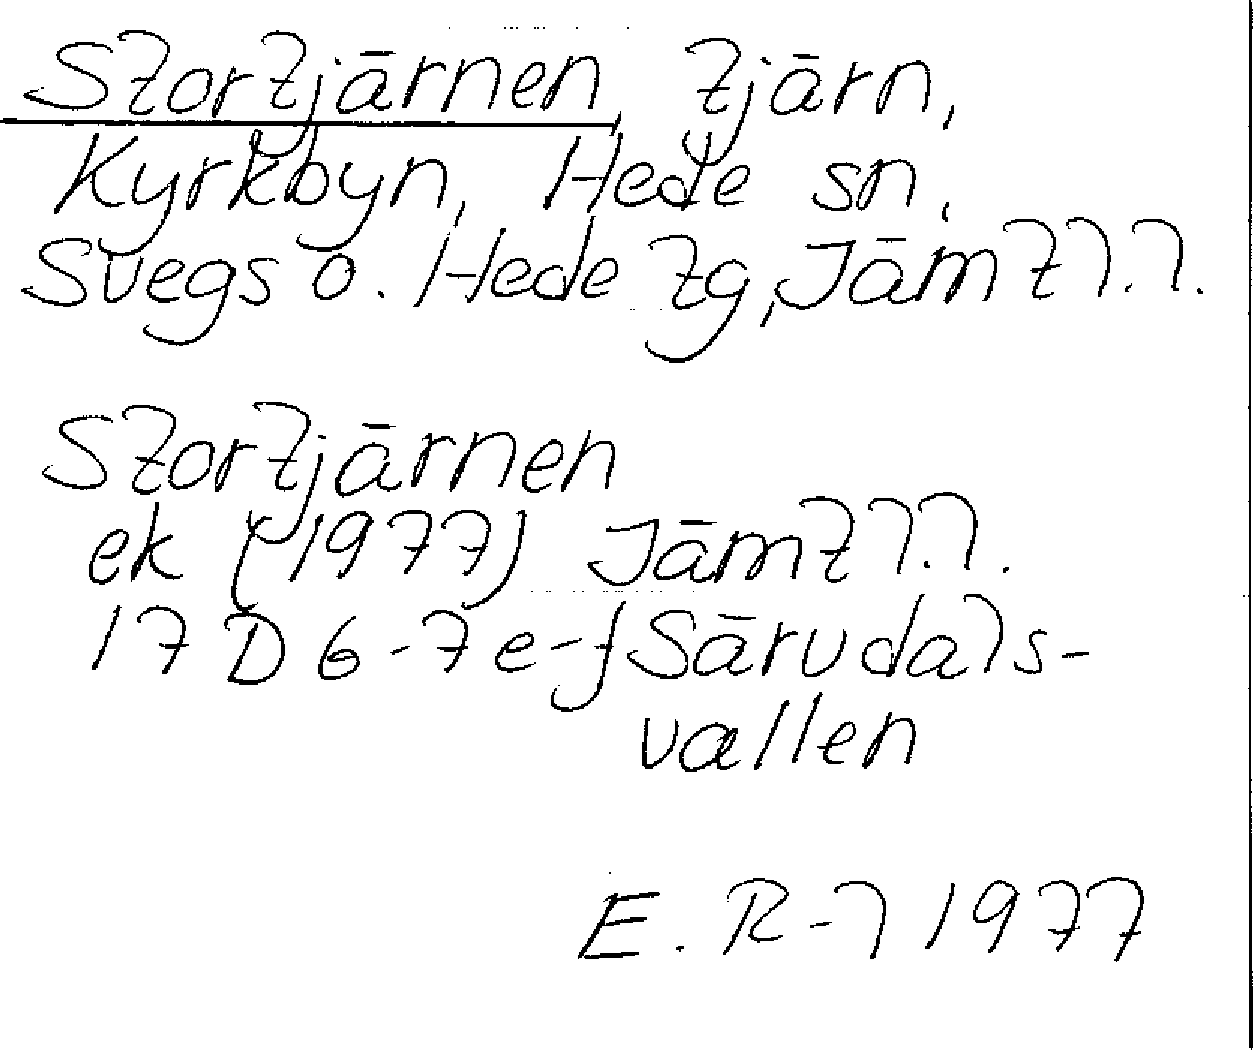 Stortjärnen, tjärn,
Kyrkbyn, Hede sn,
Svegs o. Hede tg, Jämtl.l.
Stortjärnen
ek (1977) Jämtl.l.
17 D 6-7 e-f Särvdals-
vallen
E. R-l 1977